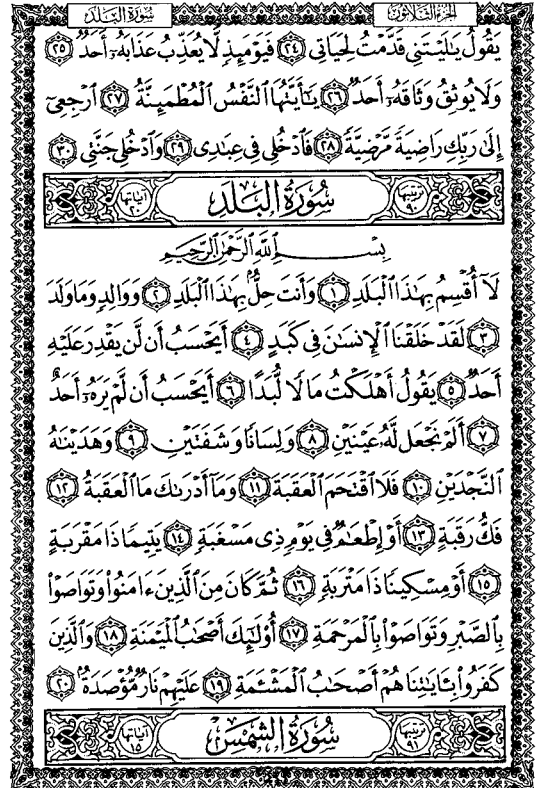 الجزء الثلاثون سورة البلد
يَقُولُ يَٰلَيْتَنِى قَدَّمْتُ لِحَيَاتِى ٢٤ فَيَوْمَئِذٍ لَّا يُعَذِّبُ عَذَابَهُۥٓ أَحَدٌ ٢٥
وَلَا يُوثِقُ وَثَاقَهُۥٓ أَحَدٌ ٢٦ يَٰٓأَيَّتُهَا ٱلنَّفْسُ ٱلْمُطْمَئِنَّةُ ٢٧ ٱرْجِعِىٓ
إِلَىٰ رَبِّكِ رَاضِيَةً مَّرْضِيَّةً ٢٨ فَٱدْخُلِى فِى عِبَٰدِى ٢٩ وَٱدْخُلِى جَنَّتِى ٣٠
ترتيبها ٩٠ سُورَةُ البَلَدِ آياتها ٢٠
بِسْمِ ٱللَّهِ ٱلرَّحْمَٰنِ ٱلرَّحِيمِ
لَآ أُقْسِمُ بِهَٰذَا ٱلْبَلَدِ ١ وَأَنتَ حِلٌّۢ بِهَٰذَا ٱلْبَلَدِ ٢ وَوَالِدٍ وَمَا وَلَدَ
٣ لَقَدْ خَلَقْنَا ٱلْإِنسَٰنَ فِى كَبَدٍ ٤ أَيَحْسَبُ أَن لَّن يَقْدِرَ عَلَيْهِ
أَحَدٌ ٥ يَقُولُ أَهْلَكْتُ مَالًا لُّبَدًا ٦ أَيَحْسَبُ أَن لَّمْ يَرَهُۥٓ أَحَدٌ
٧ أَلَمْ نَجْعَل لَّهُۥ عَيْنَيْنِ ٨ وَلِسَانًا وَشَفَتَيْنِ ٩ وَهَدَيْنَٰهُ
ٱلنَّجْدَيْنِ ١٠ فَلَا ٱقْتَحَمَ ٱلْعَقَبَةَ ١١ وَمَآ أَدْرَىٰكَ مَا ٱلْعَقَبَةُ ١٢
فَكُّ رَقَبَةٍ ١٣ أَوْ إِطْعَٰمٌ فِى يَوْمٍ ذِى مَسْغَبَةٍ ١٤ يَتِيمًا ذَا مَقْرَبَةٍ
١٥ أَوْ مِسْكِينًا ذَا مَتْرَبَةٍ ١٦ ثُمَّ كَانَ مِنَ ٱلَّذِينَ ءَامَنُوا۟ وَتَوَاصَوْا۟
بِٱلصَّبْرِ وَتَوَاصَوْا۟ بِٱلْمَرْحَمَةِ ١٧ أُو۟لَٰٓئِكَ أَصْحَٰبُ ٱلْمَيْمَنَةِ ١٨ وَٱلَّذِينَ
كَفَرُوا۟ بِـَٔايَٰتِنَا هُمْ أَصْحَٰبُ ٱلْمَشْـَٔمَةِ ١٩ عَلَيْهِمْ نَارٌ مُّؤْصَدَةٌۢ ٢٠
ترتيبها ٩١ سُورَةُ الشَّمْسِ آياتها ١٥